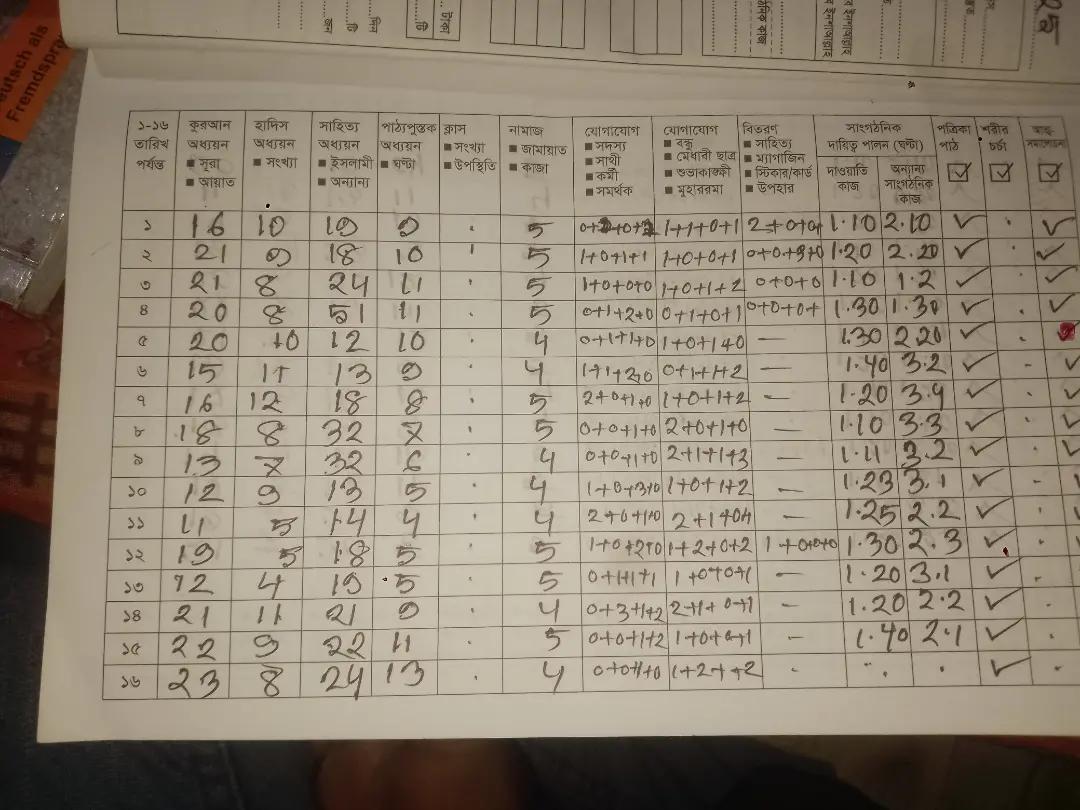 eutsch als
Fremdspra
টাকা
টি
দিন
টি
জন
১-১৬ তারিখ পর্যন্ত | কুরআন অধ্যয়ন ■ সূরা ■ আয়াত | হাদিস অধ্যয়ন ■ সংখ্যা | সাহিত্য অধ্যয়ন ■ ইসলামী ■ অন্যান্য | পাঠ্যপুস্তক অধ্যয়ন ■ ঘণ্টা | ক্লাস ■ সংখ্যা ■ উপস্থিতি | নামাজ ■ জামায়াত ■ কাজা | যোগাযোগ ■ সদস্য ■ সাথী ■ কর্মী ■ সমর্থক | যোগাযোগ ■ বন্ধু ■ মেধাবী ছাত্র ■ শুভাকাঙ্ক্ষী ■ মুহাররমা | বিতরণ ■ সাহিত্য ■ ম্যাগাজিন ■ স্টিকার/কার্ড ■ উপহার | সাংগঠনিক দায়িত্ব পালন (ঘণ্টা) দাওয়াতি কাজ | অন্যান্য সাংগঠনিক কাজ | পত্রিকা পাঠ ☑ | শরীর চর্চা ☑ | ☑
১ 16 10 19 9 · 5 1+1+0+1 2+0+0+ 1.10 2.10 ✓ · ✓
২ 21 9 18 10 5 1+0+1+1 1+0+0+1 1.20 2.20 ✓ · ✓
৩ 21 8 24 11 · 5 1+0+0+0 1+0+1+2 0+0+0 1.10 1.2 ✓ · ✓
৪ 20 8 51 11 · 5 0+1+2+0 0+1+0+1 0+0+0+ 1.30 1.30 ✓ · ✓
৫ 20 10 12 10 · 4 0+1+1+0 1+0+1+0 — 1.30 2.20 ✓ ·
৬ 15 11 13 9 · 4 0+1+1+2 — 1.40 3.2 ✓ - ✓
৭ 16 12 18 8 · 5 2+0+1+0 1+0+1+2 — 1.20 3.4 ✓ · ✓
৮ 18 8 32 7 · 5 0+0+1+0 2+0+1+0 — 1.10 3.3 ✓ · ✓
৯ 13 7 32 6 · 4 0+0+1+0 2+1+1+3 — 1.11 3.2 ✓ · ✓
১০ 12 9 13 5 · 4 1+0+3+0 1+0+1+2 — 1.23 3.1 ✓ - ✓
১১ 11 5 14 4 · 4 2+0+1+0 — 1.25 2.2 ✓ · ✓
১২ 19 5 18 5 · 5 1+0+2+0 1+2+0+2 1+0+0+0 1.30 2.3 ✓ · ✓
১৩ 12 4 19 5 · 5 0+1+1+1 1+0+0+1 — 1.20 3.1 ✓ -
১৪ 21 11 21 9 · 4 0+3+1+2 2+1+0+1 — 1.20 2.2 ✓ ·
১৫ 22 9 22 11 · 5 0+0+1+2 — 1.40 2.1 ✓ ·
১৬ 23 8 24 13 · 4 0+0+1+0 · · · ✓ ·